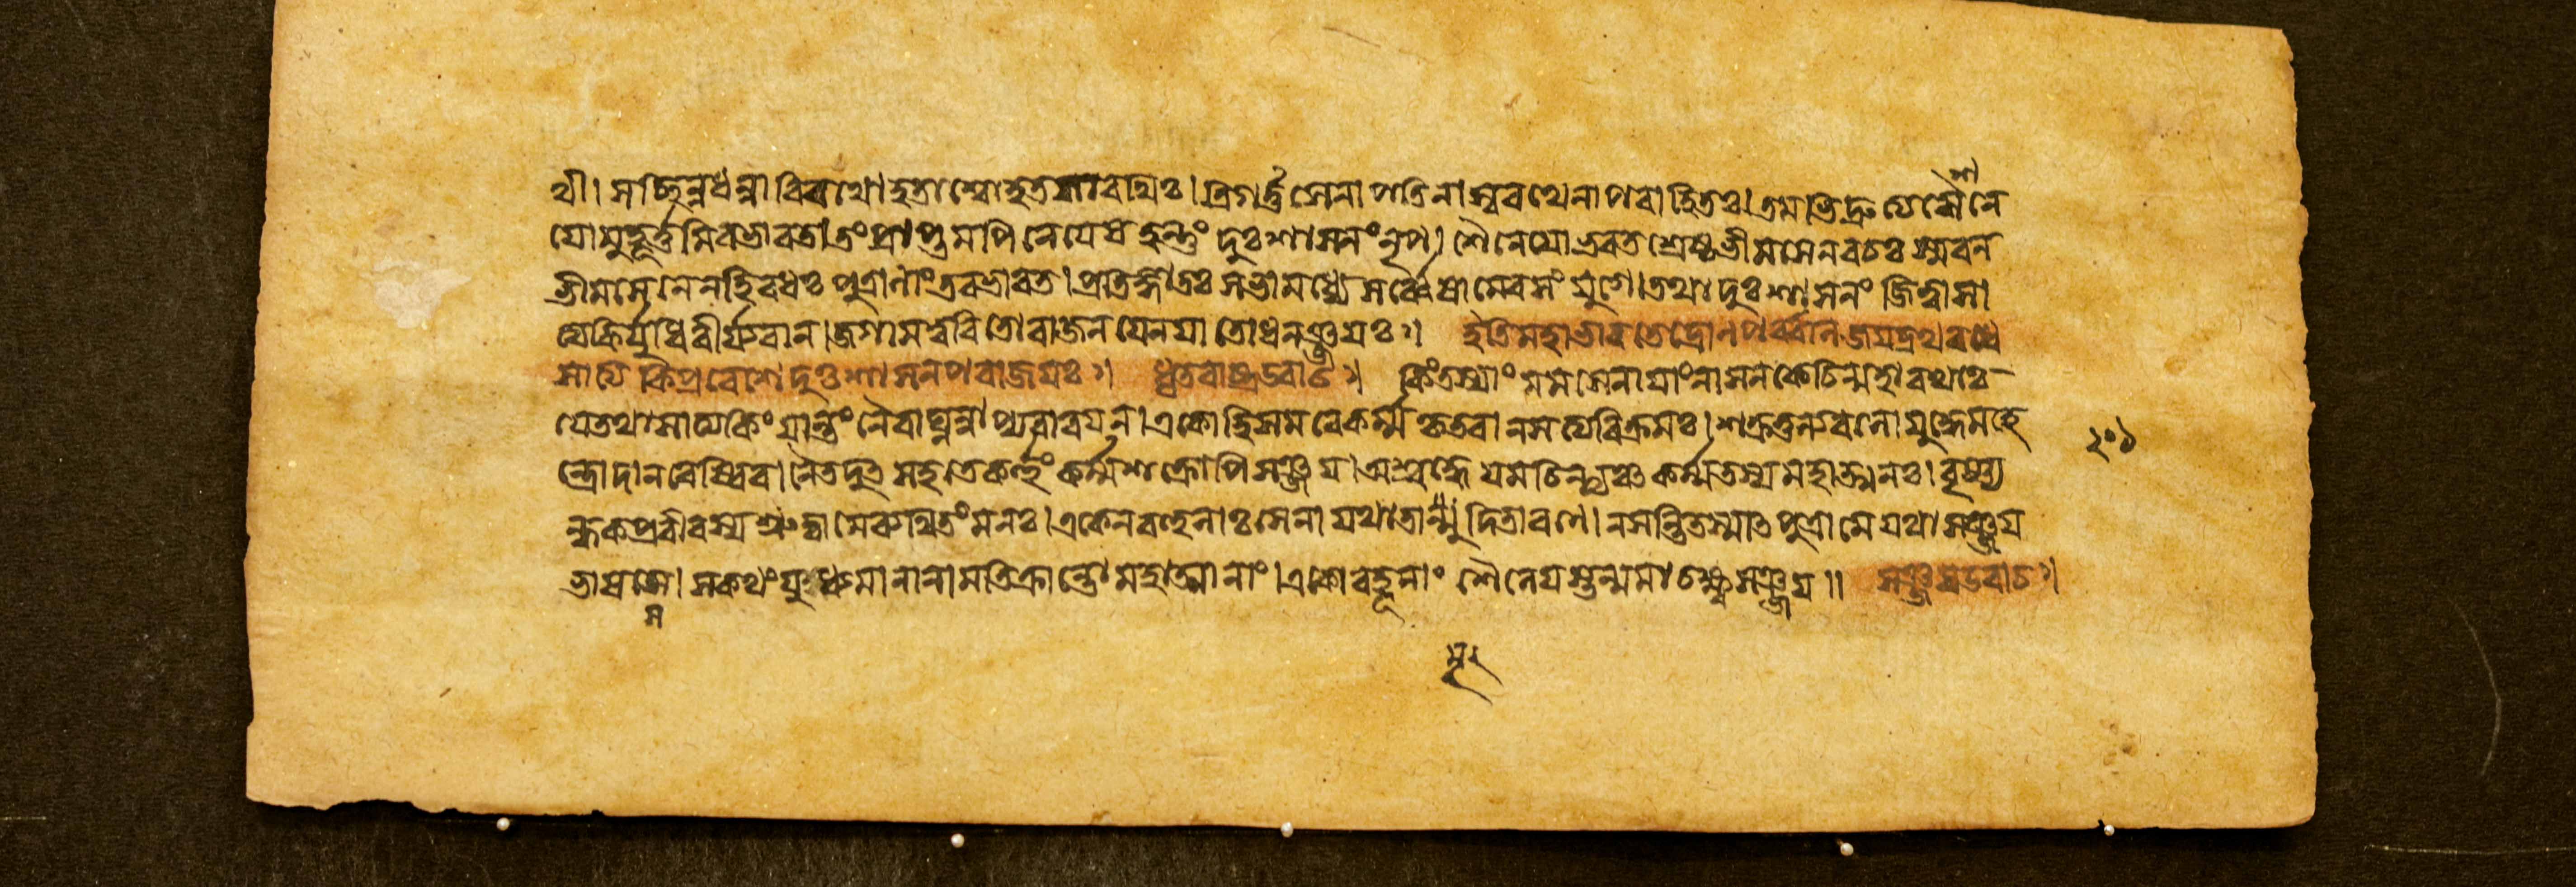 থী। স চ্ছিন্নধন্বা বিরথো হতাশ্বো হতসারথিঃ। ত্রিগর্ত্তসেনাপতিনা স্বরথেনাপবাহিতঃ। তমভিদ্রুত্য শৈনে
যো মুহূর্ত্তমিব ভারত। তং প্রাপ্তমপি নেযেষ হন্তুং দুঃশাসনং নৃপ। শৈনেযো ভরতশ্রেষ্ঠ ভীমসেনবচঃ স্মরন
ভীমসেনেন হি বধঃ পুত্রানাং তব ভারত। প্রতিজ্ঞাতঃ সভামধ্যে সর্ব্বেষামেব সংযুগে। তথা দুঃশাসনং জিত্বা সা
ত্যকির্যুধি বীর্যবান। জগাম ত্বরিতো রাজন যেন যাতো ধনঞ্জযঃ॥ ইতি মহাভারতে দ্রোনপর্ব্বনি জযদ্রথবধে
সাত্যকিপ্রবেশে দুঃশাসনপরাজযঃ॥ ধৃতরাষ্ট্র উবাচ॥ কিং তস্যাং মম সেনাযাং নাসন কেচিন্মহারথাঃ
যে তথা সাত্যকিং যান্তং নৈবাঘ্নন্নাপ্যবারযন। একো হি সমরে কর্ম্ম কৃতবান সত্যবিক্রমঃ। শক্রতুল্যবলো যুদ্ধে মহে
ন্দ্রো দানবেষ্বিব। কর্ম্ম শক্রোপি সঞ্জয। অশ্রদ্ধেযমচিন্ত্যঞ্চ কর্ম্ম তস্য মহাত্মনঃ। বৃষ্ণ্য
ন্ধকপ্রবীরস্য শ্রুত্বা মে ব্যথিতং মনঃ। একেন বহুলাঃ সেনা যথা তা মর্দিতা রণে। ন সন্তি তস্মাত পুত্রা মে যথা সঞ্জয
ভাষসে। স কথং যুধ্যমানানামতিক্রান্তো মহাত্মানাং। একো বহূনাং শৈনেযস্তন্মমাচক্ষ্ব সঞ্জয॥ সঞ্জয উবাচ॥
২০১